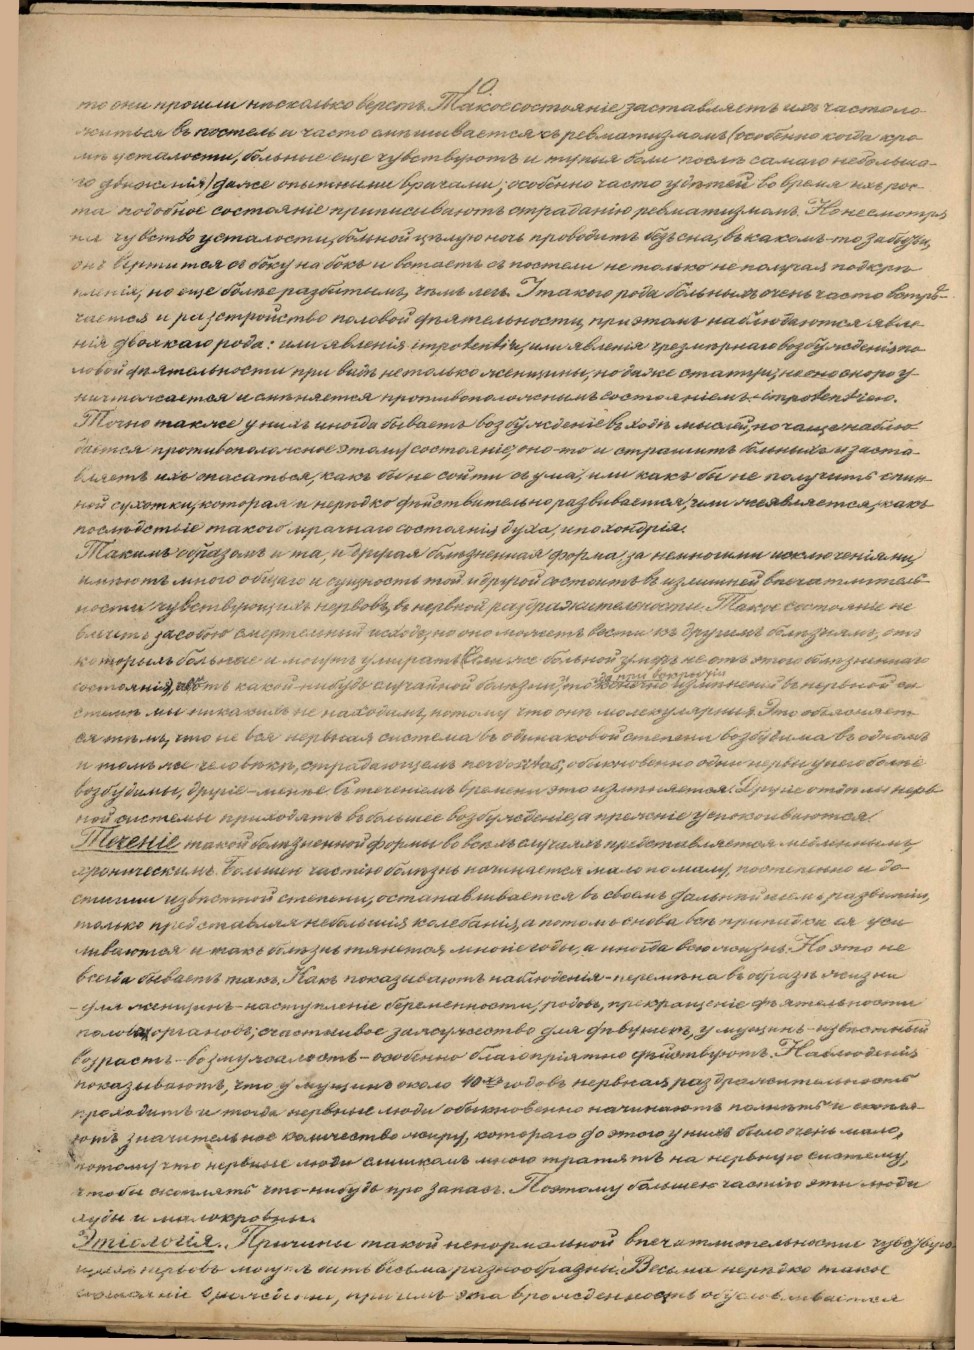 10
то они прошли нѣсколько верстъ. Такое состояніе заставляетъ ихъ часто ло
житься въ постель и часто смѣшивается съ ревматизмомъ (особенно когда кро
мѣ усталости, больные еще чувствуютъ и тупыя боли послѣ самаго небольша-
го движенія) даже опытными врачами; особенно часто у дѣтей во время ихъ рос-
та подобное состояніе приписываютъ страданію ревматизмомъ. Но несмотря
на чувство усталости, больной цѣлую ночь проводитъ безъ сна, въ какомъ-то забытьи,
онъ вертится съ боку на бокъ и встаетъ съ постели не только не получая подкрѣ
пленія, но еще болѣе разбитымъ, чѣмъ легъ. У такого рода больныхъ очень часто встрѣ-
чается и разстройство половой дѣятельности, при этомъ наблюдаются явле-
нія двоякаго рода: или явленія impotentiae, или явленія чрезмѣрнаго возбужденія по-
ловой дѣятельности при видѣ не только женщины, но даже статуи; но оно скоро у-
ничтожается и смѣняется противоположнымъ состояніемъ - impotentiею.
Точно также у нихъ иногда бываетъ возбужденіе въ ходѣ мыслей, но чаще наблю
дается противоположное этому состояніе, оно-то и страшитъ больныхъ и заста-
вляетъ ихъ опасаться, какъ бы не сойти съ ума, или какъ бы не получить спин-
ной сухотки, которая и нерѣдко дѣйствительно развивается, или же является, какъ
послѣдствіе такого мрачнаго состоянія духа, ипохондрія.
Такимъ образомъ и та, и другая болѣзненная форма, за немногими исключеніями,
имѣютъ много общаго и сущность той и другой состоитъ въ излишней впечатлитель-
ности чувствующихъ нервовъ, въ нервной раздражительности. Такое состояніе не
влечетъ за собою смертельный исходъ, но оно можетъ вести къ другимъ болѣзнямъ, отъ
которыхъ больные и могутъ умирать. Если же больной умеръ не отъ этого болѣзненнаго
состоянія, а отъ какой-нибудь случайной болѣзни, то
да при вскрытіи
измѣненій въ нервной си-
стемѣ мы никакихъ не находимъ, потому что онѣ молекулярны. Это объясняет-
ся тѣмъ, что не вся нервная система въ одинаковой степени возбудима въ одномъ
и томъ же человѣкѣ, страдающемъ nervositas; обыкновенно одни нервы у него болѣе
возбудимы, другіе - менѣе. Съ теченіемъ времени это измѣняется. Другіе отдѣлы нерв
ной системы приходятъ въ большее возбужденіе, а прежніе успокоиваются.
Теченіе такой болѣзненной формы во всѣхъ случаяхъ представляется медленнымъ,
хроническимъ. Большею частію болѣзнь начинается мало по малу, постепенно и до-
стигши извѣстной степени, останавливается въ своемъ дальнѣйшемъ развитіи,
только представляя небольшія колебанія, а потомъ снова всѣ припадки ея уси
ливаются и такъ болѣзнь тянется многіе годы, а иногда всю жизнь. Но это не
всегда бываетъ такъ. Какъ показываютъ наблюденія - перемѣна въ образѣ жизни
- для женщинъ - наступленіе беременности, родовъ, прекращеніе дѣятельности
половыхъ органовъ; счастливое замужество для дѣвушекъ, у мущинъ - извѣстный
возрастъ - возмужалость - особенно благопріятно дѣйствуютъ. Наблюденія
показываютъ, что у мущинъ около 40хъ годовъ нервная раздражительность
проходитъ и тогда нервные люди обыкновенно начинаютъ полнѣть и скопля-
ютъ значительное количество жиру, котораго до этого у нихъ было очень мало,
потому что нервные люди слишкомъ много тратятъ на нервную систему,
чтобы скоплять что-нибудь про запасъ. Поэтому большею частію эти люди
худы и малокровны.
Этіологія. Причины такой ненормальной впечатлительности чувствую
щихъ нервовъ могутъ быть весьма разнообразны. Весьма нерѣдко такое
состояніе врожденно, причемъ эта врожденность обусловливается